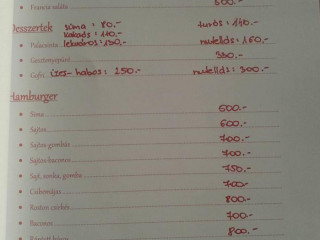 • Francia saláta 500.-
Desszertek
sima: 80.- túrós: 140.-
kakaós: 120.-
• Palacsinta lekváros: 130.- nutellás: 160.-
• Gesztenyepüré 350.-
• Gofri ízes- habos: 250.- nutellás: 300.-
Hamburger
• Sima 500.-
• Sajtos 600.-
• Sajtos-gombás 700.-
• Sajtos-baconos 700.-
• Sajt, sonka, gomba 750.-
• Csibemájas 700-
• Rostos-csirkés 800.-
• Baconos 700.-
• 800.-